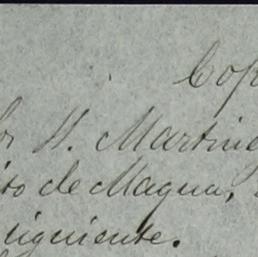 Cop
or H. Martine
ito de Magua,
iguiente.